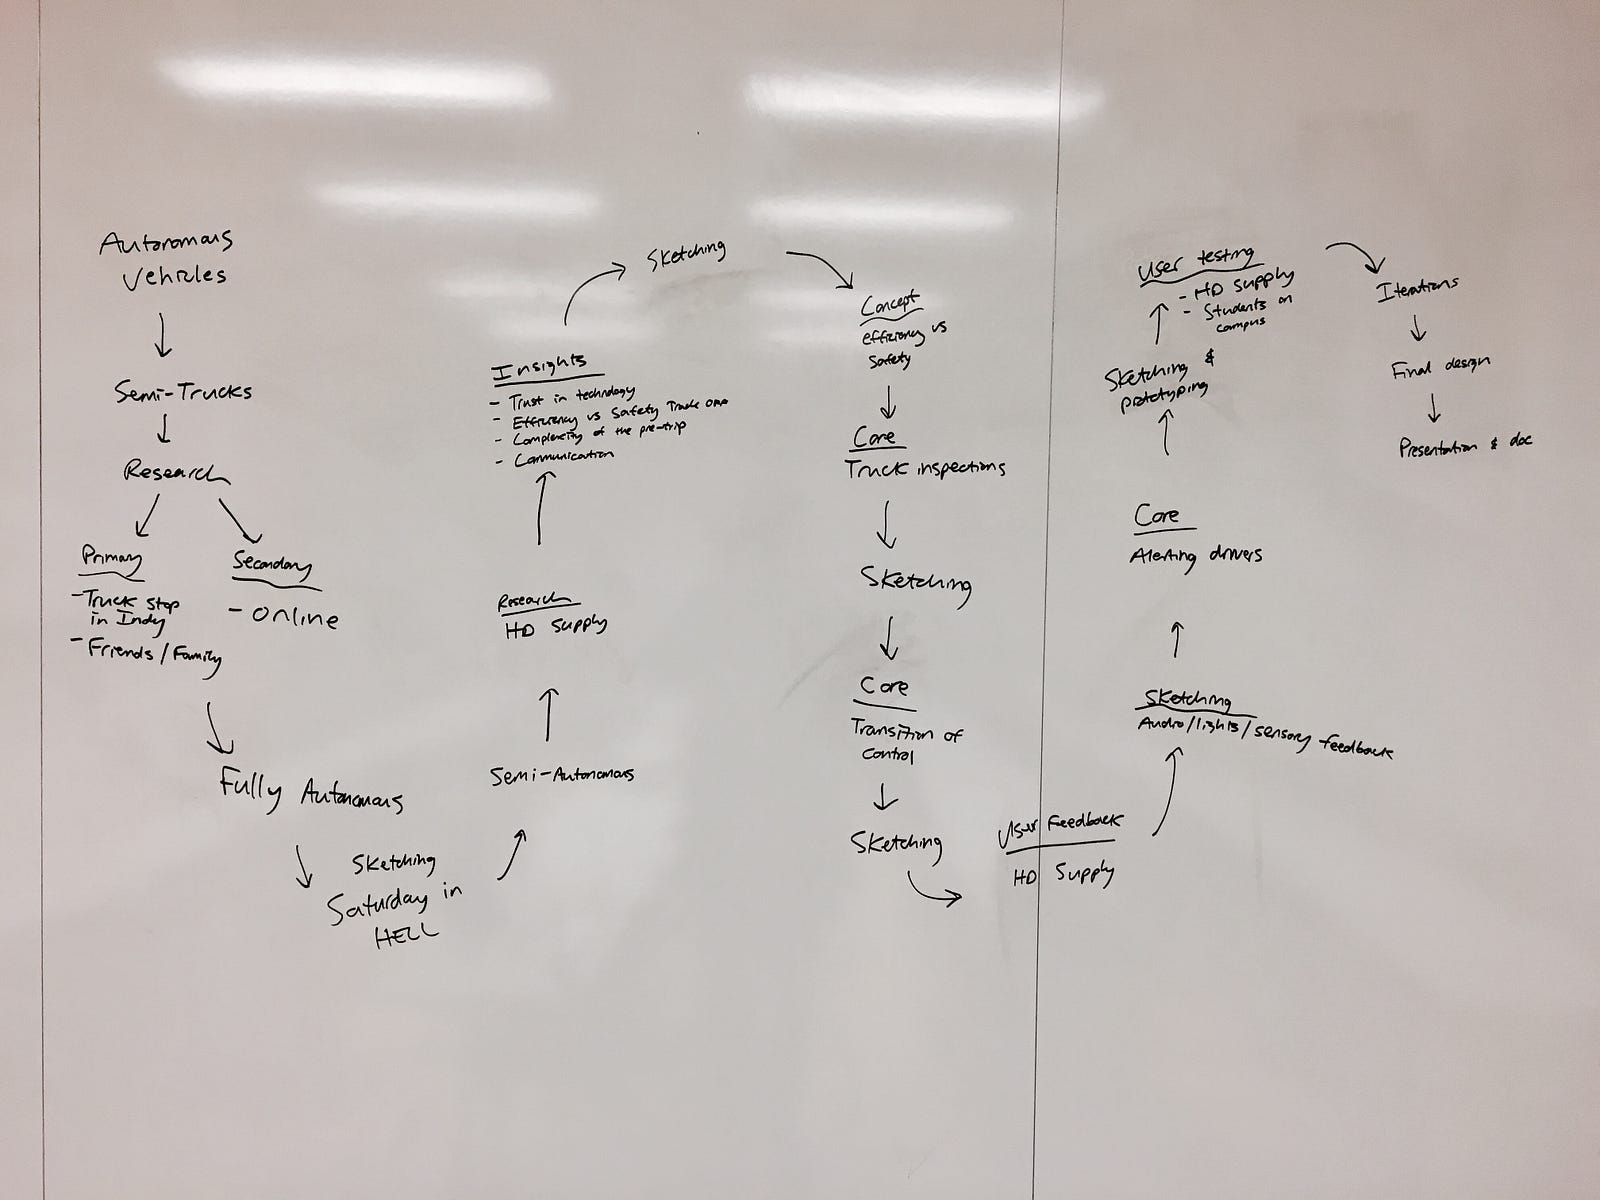 Autonomous
Vehicles
Semi-Trucks
Research
Primary
- Truck stop
in Indy
- Friends / Family
Secondary
- Online
Fully Autonomous
Sketching
Saturday in
HELL
Semi-Autonomous
Research
HD Supply
Insights
- Trust in technology
- Efficiency vs Safety Trade
- Complexity of the pre-trip
- Communication
Sketching
Concept
efficiency vs
Safety
Core
Truck inspections
Sketching
Core
Transition of
Control
Sketching
User Feedback
HD Supply
Sketching
Audio/lights/sensory feedback
Core
Alerting drivers
Sketching &
prototyping
User testing
- HD Supply
- Students on
campus
Iterations
Final design
Presentation & doc